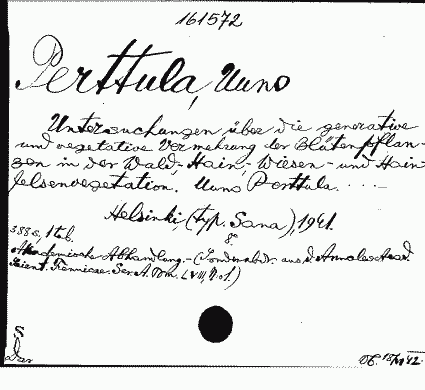 161572
Perttula, Uuno
Untersuchungen über die generative
und vegetative Vermehrung der Blütenpflan-
zen in der Wald-, Hain-, Wiesen- und Hain-
felsenvegetation. Uuno Perttula. . . . —
Helsinki, (typ. Sana), 1941.
8°.
388 s, 1 tab.
Akademische Abhandlung. - (Sonderabdr. aus d. Annales Acad.
Scient. Fennicae. Ser. A. Tom. LVIII, N:o 1.)
S
Diss